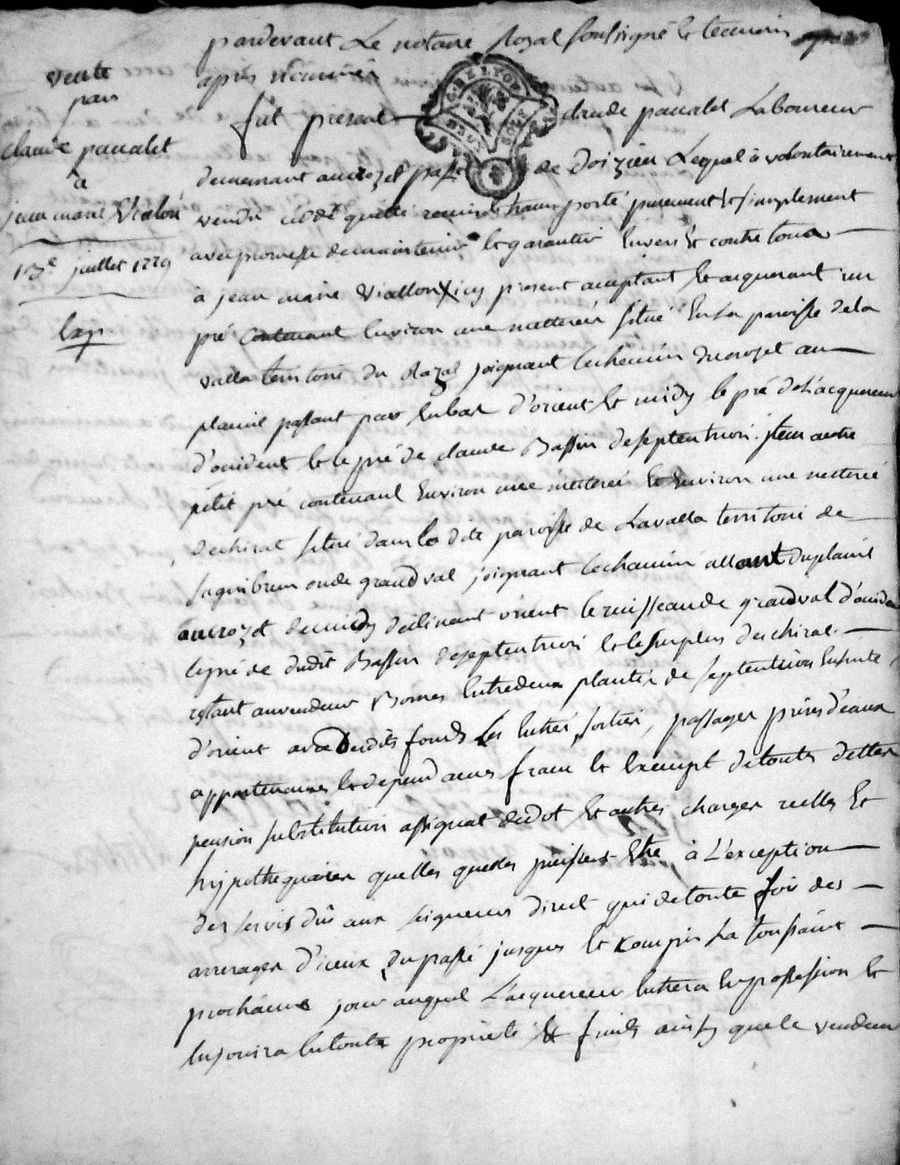 pardevant Le notaire Royal soussigné et temoins
après nommés
fut present claude paucalet Laboureur
demeurant au crozet psse de Doizieu Lequel à volontairement
vendu cédé quitté remis et transporté purement et simplement
avec promesse de maintenir et garantir Envers et contre tous
à jean marie Viallon icy present acceptant et acquerant un
pré Contenant Environ une metterée situé En la paroisse de la
valla territoire du Razal joignant le chemin du crozet au
planil passant par Enbas d'orient et midy le pré de L'acquereur
d'occident et le pré de claude Bassin de septentrion. jtem autre
petit pré contenant Environ une metterée et Environ une metterée
de chirat situé dans la de paroisse de Lavalla territoire de
ou de grandval joignant le chemin allant du planil
au crozet de midy déclinant orient le ruisseau de grandval d'occident
le pré de dudit Bassin de septentrion et le surplus du chirat
restant au vendeur Bornes Entredeux plantés de septentrion Ensuite
d'orient avec desdits fonds Les Entrés, sorties, passages prises d'eaux
appartenances et dependances franc et Exempt de toutes dettes
pension substitution assignat de dot et autres charges reelles et
hypothequaires quelles quelles puissent Etre à L'exception
des servis dûs aux seigneurs direct qui de toute fois des
arrerages d'iceux du passé jusques et Compris La toussaint
prochaine jour auquel L'acquereur Entrera En possession et
En jouira En toute proprieté et fruits ainsy que le vendeur
vente
par
claude paucalet
à
jean marie Vialon
juillet 1779